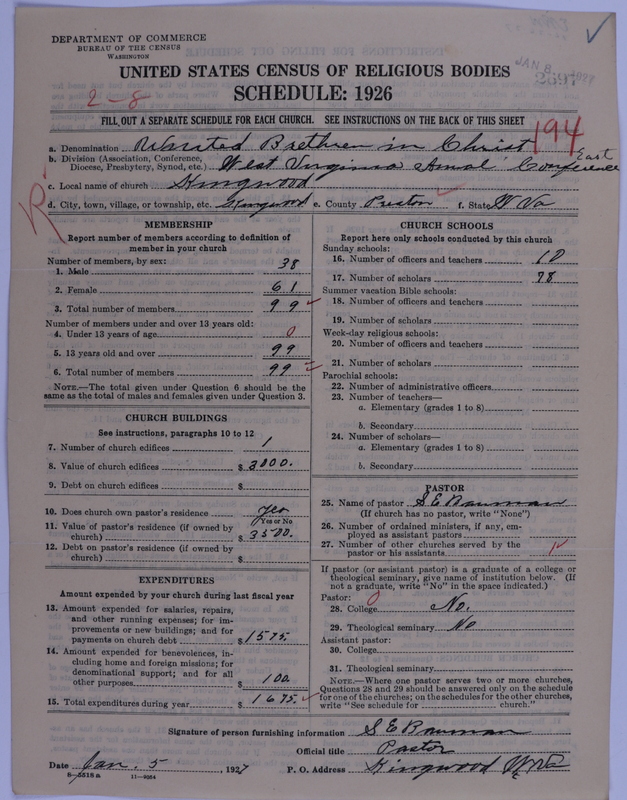 DEPARTMENT OF COMMERCE
BUREAU OF THE CENSUS
WASHINGTON
JAN 8
UNITED STATES CENSUS OF RELIGIOUS BODIES
SCHEDULE: 1926
2-8
FILL OUT A SEPARATE SCHEDULE FOR EACH CHURCH. SEE INSTRUCTIONS ON THE BACK OF THIS SHEET
194
a. Denomination United Brethren in Christ
b. Division (Association, Conference, Diocese, Presbytery, Synod, etc.) West Virginia Annual Conference East
c. Local name of church Kingwood
d. City, town, village, or township, etc. Kingwood e. County Preston f. State W Va
R
MEMBERSHIP
Report number of members according to definition of member in your church
Number of members, by sex:
1. Male 38
2. Female 61
3. Total number of members 99
Number of members under and over 13 years old:
4. Under 13 years of age 0
5. 13 years old and over 99
6. Total number of members 99
NOTE.—The total given under Question 6 should be the same as the total of males and females given under Question 3.
CHURCH BUILDINGS
See instructions, paragraphs 10 to 12
7. Number of church edifices 1
8. Value of church edifices $ 3000.
9. Debt on church edifices $
10. Does church own pastor's residence yes
Yes or No
11. Value of pastor's residence (if owned by church) $ 3500.
12. Debt on pastor's residence (if owned by church) $
EXPENDITURES
Amount expended by your church during last fiscal year
13. Amount expended for salaries, repairs, and other running expenses; for improvements or new buildings; and for payments on church debt $ 1575.
14. Amount expended for benevolences, including home and foreign missions; for denominational support; and for all other purposes $ 100
15. Total expenditures during year $ 1675.
CHURCH SCHOOLS
Report here only schools conducted by this church
Sunday schools:
16. Number of officers and teachers 10
17. Number of scholars 78
Summer vacation Bible schools:
18. Number of officers and teachers
19. Number of scholars
Week-day religious schools:
20. Number of officers and teachers
21. Number of scholars
Parochial schools:
22. Number of administrative officers
23. Number of teachers—
a. Elementary (grades 1 to 8)
b. Secondary
24. Number of scholars—
a. Elementary (grades 1 to 8)
b. Secondary
PASTOR
25. Name of pastor S E Bauman
(If church has no pastor, write "None")
26. Number of ordained ministers, if any, employed as assistant pastors
27. Number of other churches served by the pastor or his assistants
If pastor (or assistant pastor) is a graduate of a college or theological seminary, give name of institution below. (If not a graduate, write "No" in the space indicated.)
Pastor: 0
28. College No.
29. Theological seminary No
Assistant pastor:
30. College
31. Theological seminary
NOTE.—Where one pastor serves two or more churches, Questions 28 and 29 should be answered only on the schedule for one of the churches; on the schedules for the other churches, write "See schedule for church."
Signature of person furnishing information S E Bauman
Official title Pastor
Date Jan. 5, 1927 P. O. Address Kingwood W Va
8—5518 a 11—9264